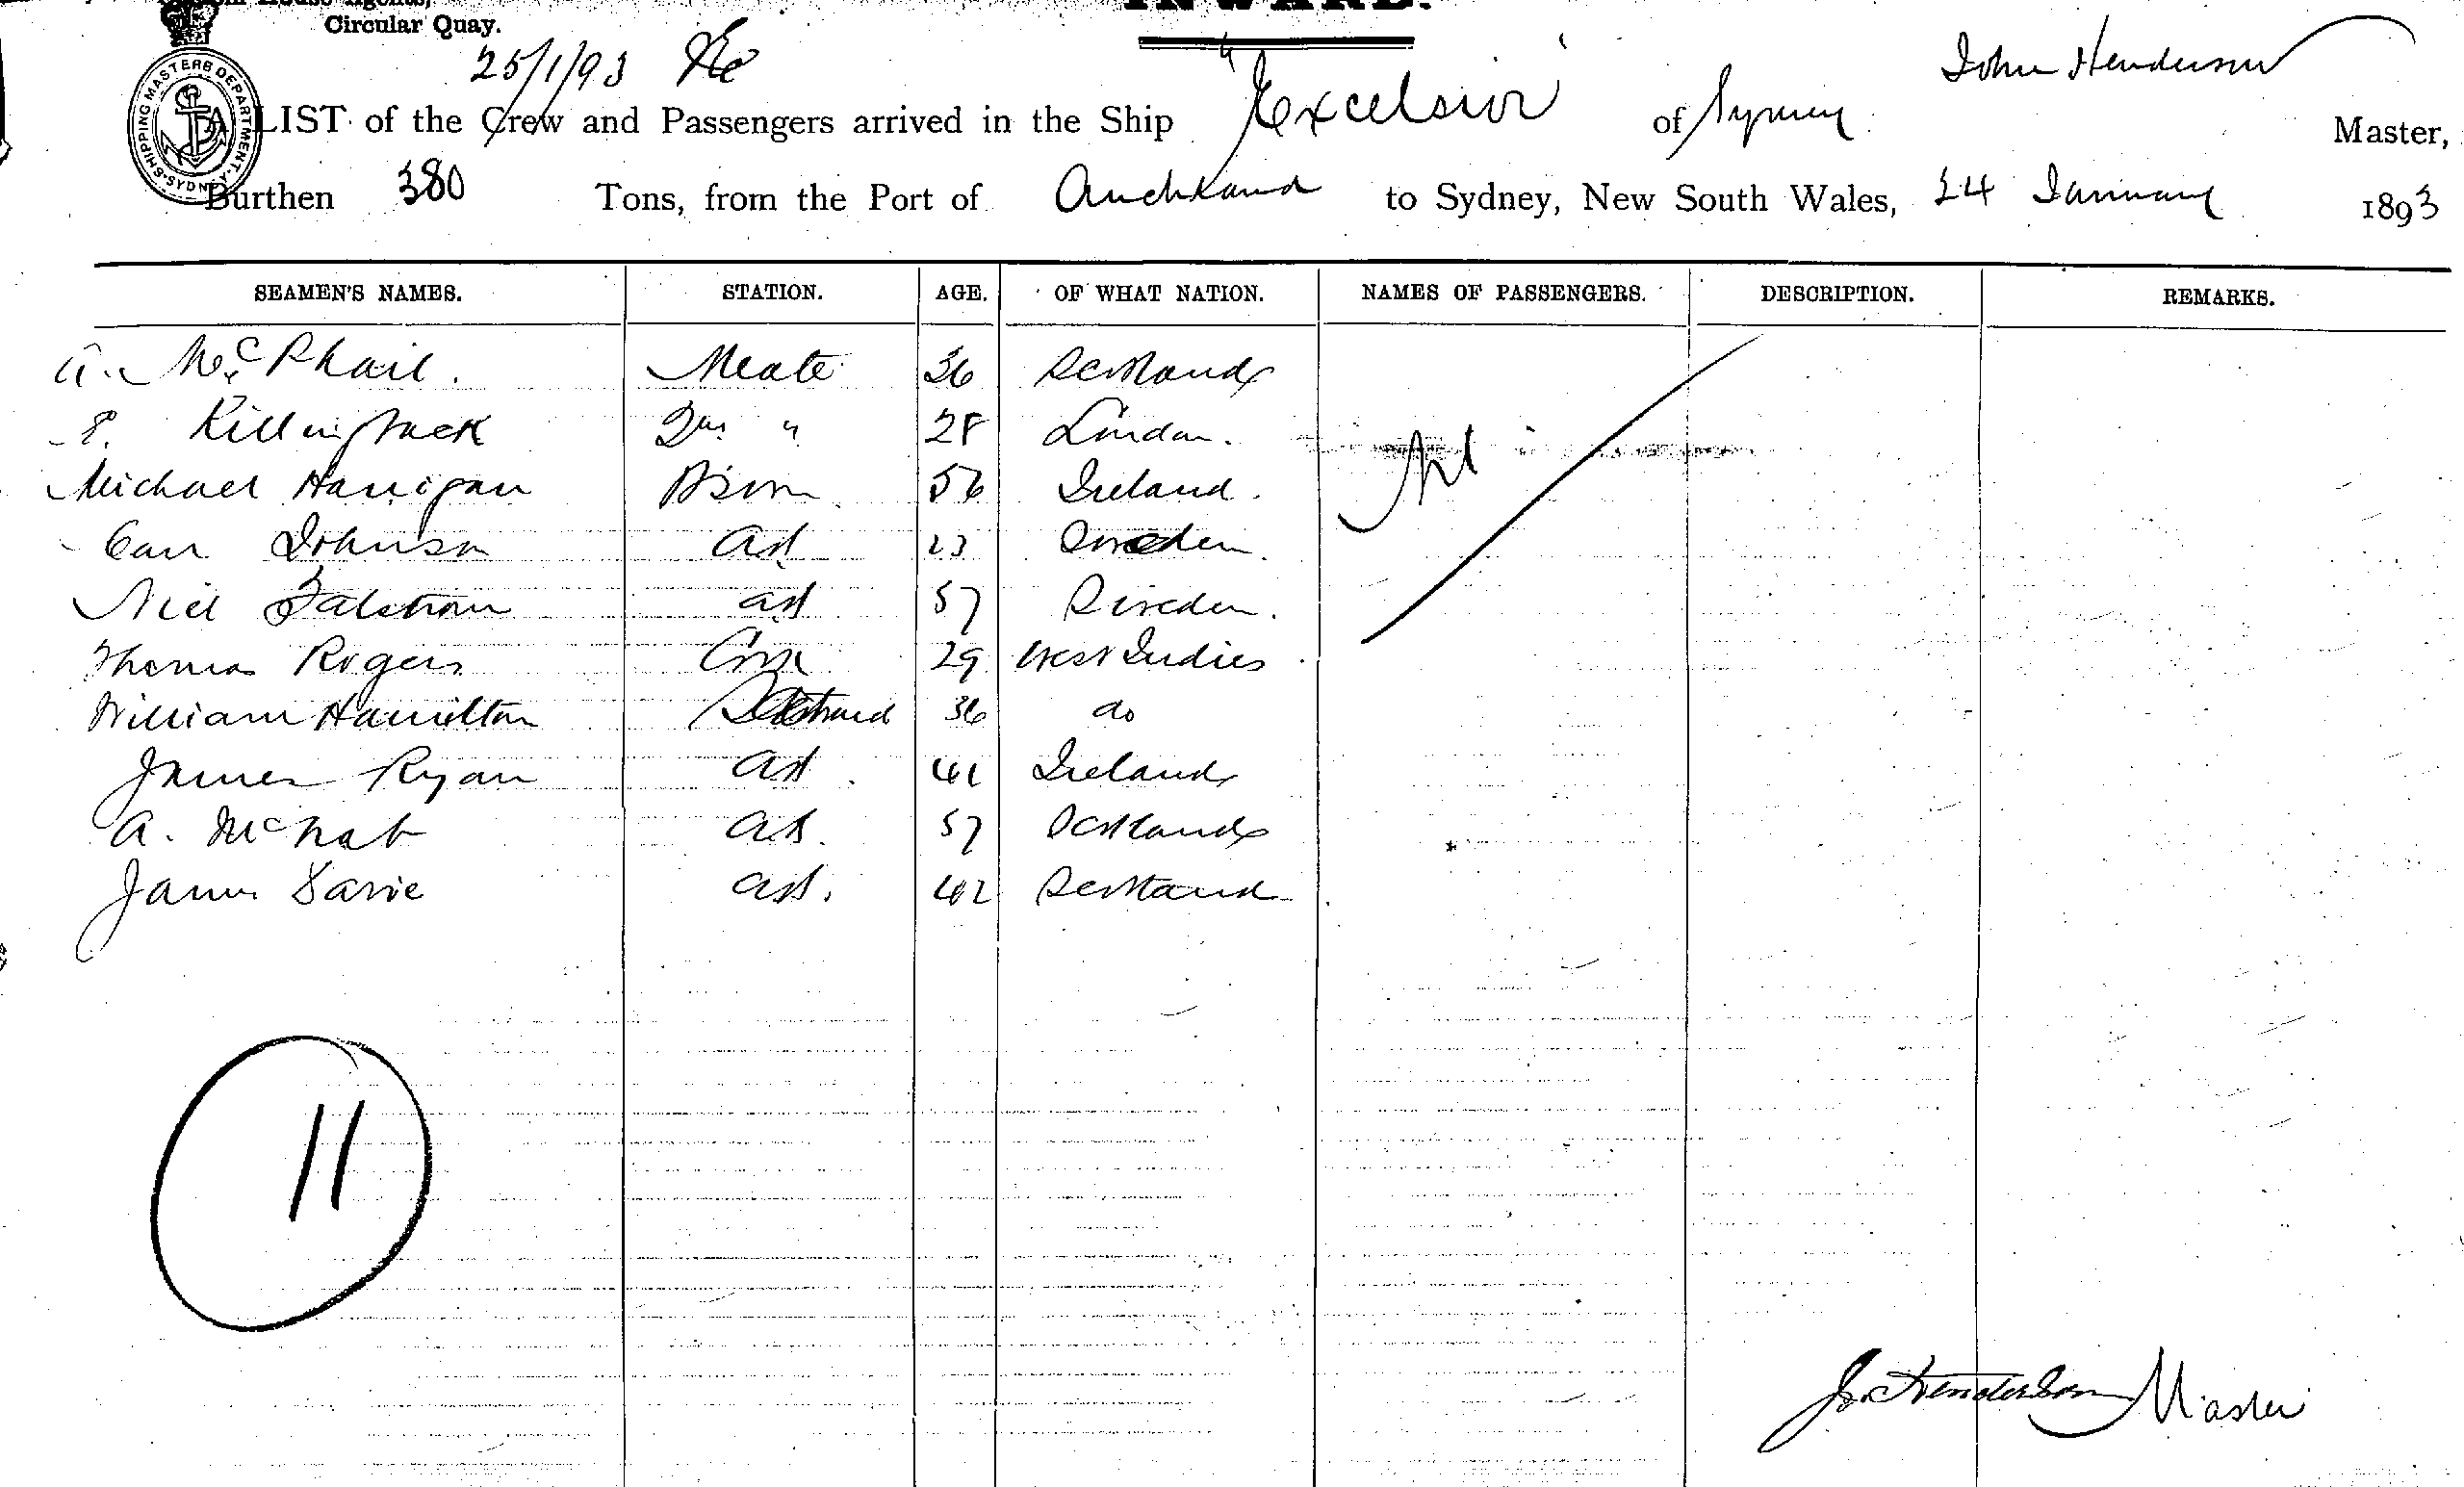 House Agents,
Circular Quay.
INWARD.
25/1/93
SHIPPING MASTERS DEPARTMENT. SYDNEY.
A LIST of the Crew and Passengers arrived in the Ship "Excelsior" of Sydney John Henderson Master,
Burthen 380 Tons, from the Port of Auckland to Sydney, New South Wales, 24 January 1893
SEAMEN'S NAMES. STATION. AGE. OF WHAT NATION. NAMES OF PASSENGERS. DESCRIPTION. REMARKS.
A. McPhail. Mate 36 Scotland
2nd " 28 London.
Michael Hannigan Bosun 56 Ireland.
Carl Johnson AB 23 Sweden.
Niel AB 57 Sweden.
Thomas Rogers Cook 29 West Indies
William Hamilton Steward 36 do
James Ryan AB 41 Ireland
A. McNab AB. 57 Scotland
James Davie AB. 42 Scotland
Nil
11
J. Henderson Master